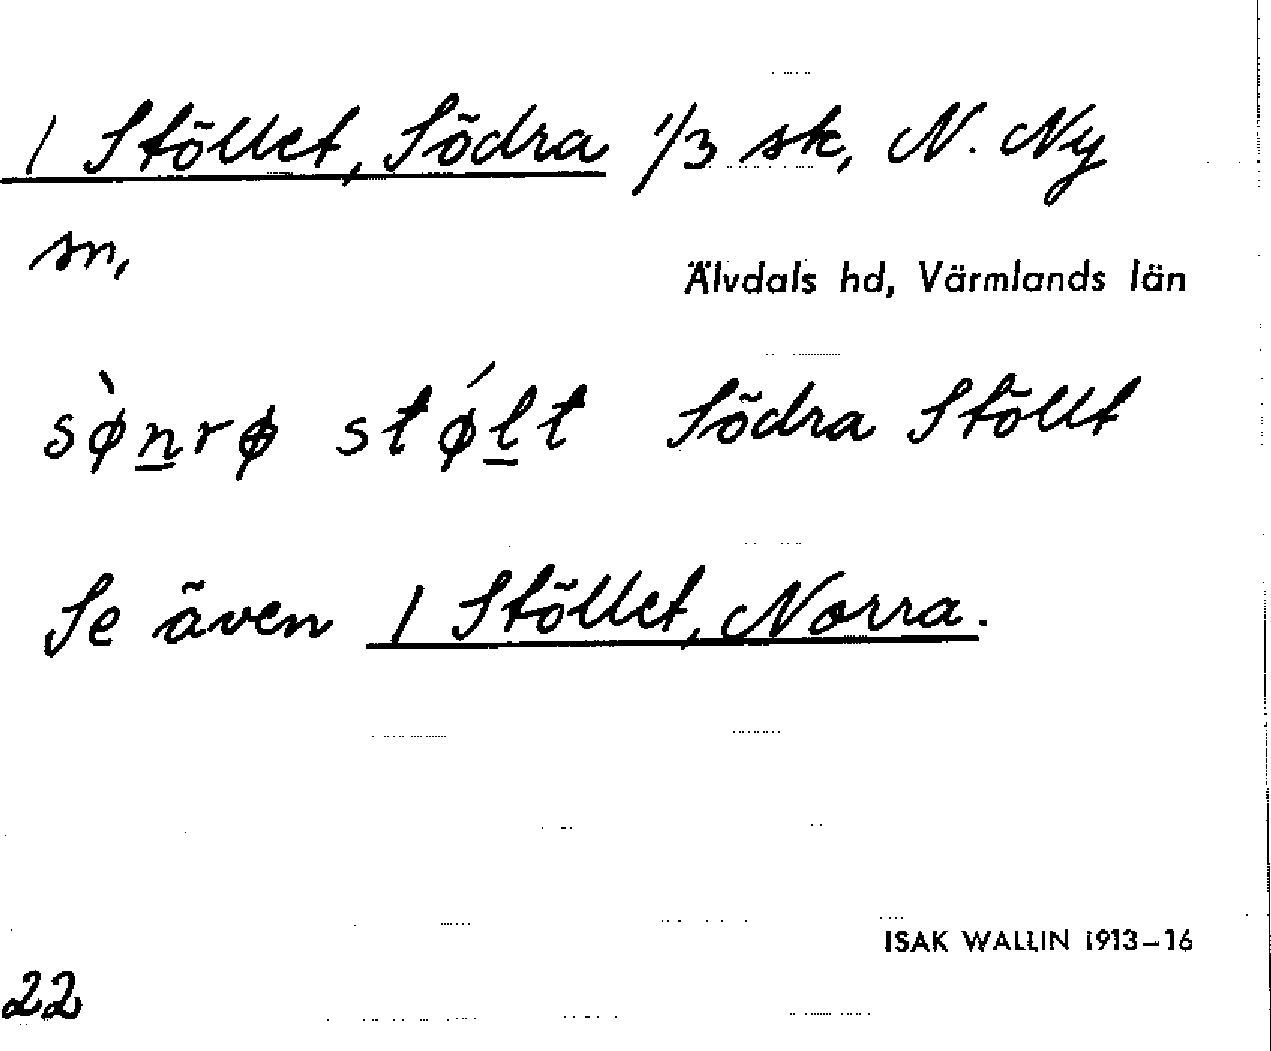 1 Stöllet, Södra 1/3 sk, N. Ny
sn,
Älvdals hd, Värmlands län
sø̀n̲rø stǿl̲t Södra Stöllt
Se även 1 Stöllet, Norra.
ISAK WALLIN 1913–16
22